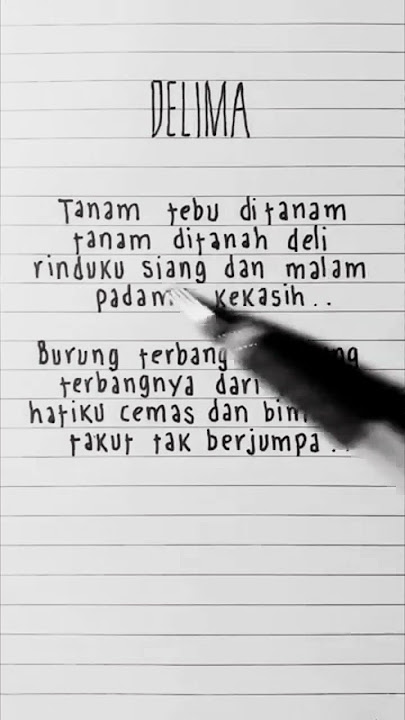 DELIMA
Tanam tebu ditanam
tanam ditanah deli
rinduku siang dan malam
padam kekasih..
Burung terbang
terbangnya dari
hatiku cemas dan
takut tak berjumpa..